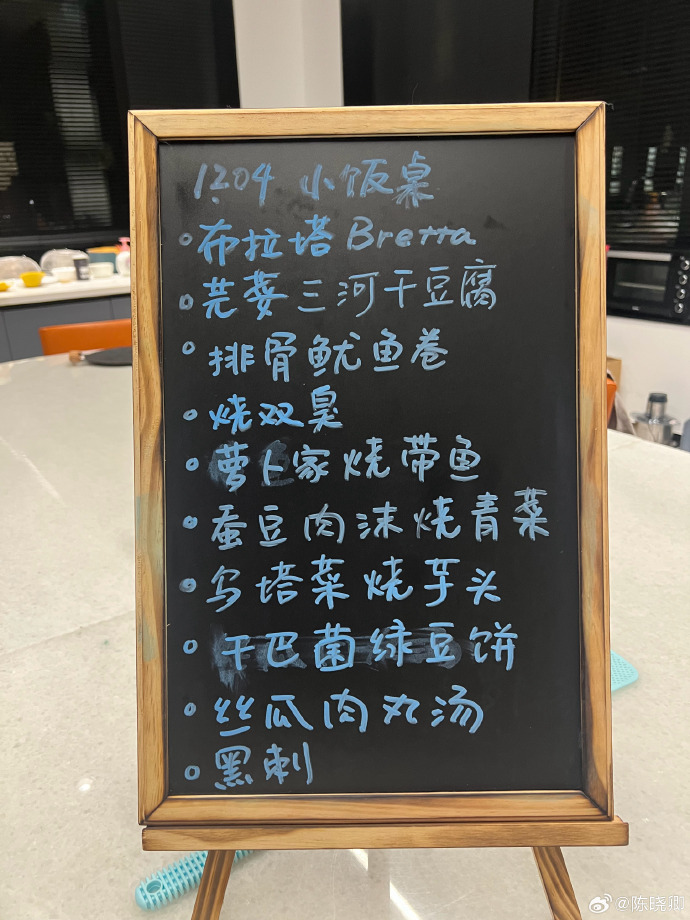 1204 小饭桌
布拉塔 Bretta
芫荽三河干豆腐
排骨鱿鱼卷
烧双臭
萝卜家烧带鱼
蚕豆肉沫烧青菜
乌塔菜烧芋头
干巴菌绿豆饼
丝瓜肉丸汤
黑刺
@陈晓卿